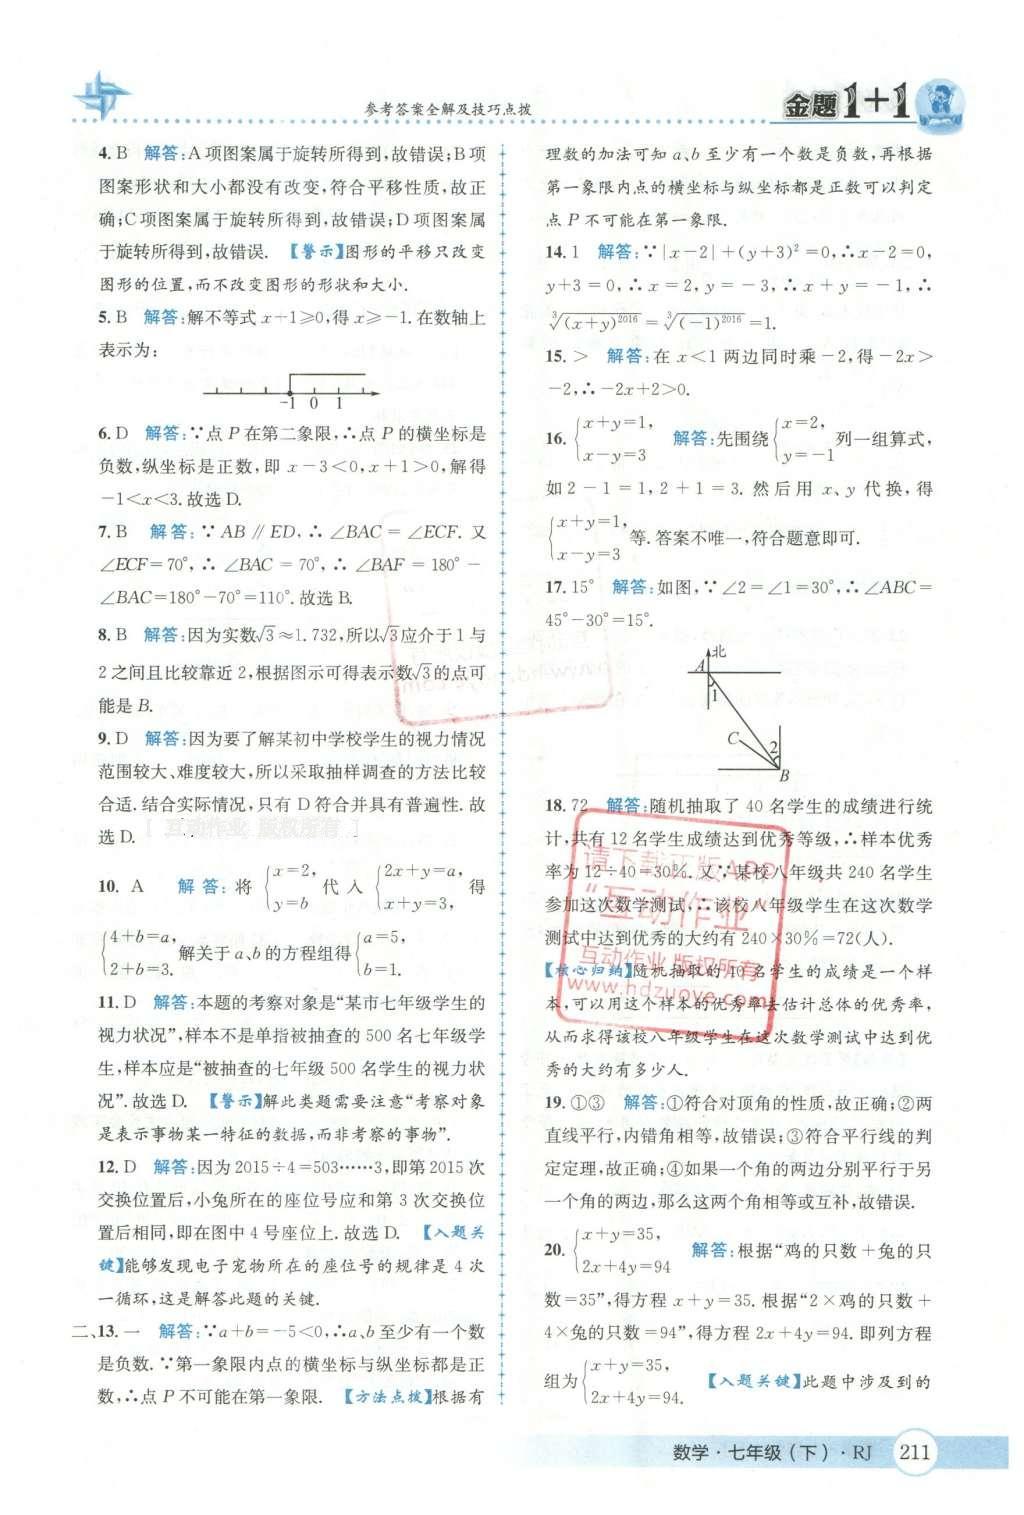 参考答案全解及技巧点拨
金题1+1
4. B 解答:A项图案属于旋转所得到,故错误;B项
图案形状和大小都没有改变,符合平移性质,故正
确;C项图案属于旋转所得到,故错误;D项图案属
于旋转所得到,故错误. 【警示】图形的平移只改变
图形的位置,而不改变图形的形状和大小.
5. B 解答:解不等式x+1≥0,得x≥-1.在数轴上
表示为:
-1 0 1
6. D 解答:∵点P在第二象限,∴点P的横坐标是
负数,纵坐标是正数,即x-3<0,x+1>0,解得
-1<x<3.故选D.
7. B 解答:∵AB∥ED,∴∠BAC=∠ECF.又
∠ECF=70°,∴∠BAC=70°,∴∠BAF=180°-
∠BAC=180°-70°=110°.故选B.
8. B 解答:因为实数√3≈1.732,所以√3应介于1与
2之间且比较靠近2,根据图示可得表示数√3的点可
能是B.
9. D 解答:因为要了解某初中学校学生的视力情况
范围较大、难度较大,所以采取抽样调查的方法比较
合适.结合实际情况,只有D符合并具有普遍性.故
选D.
10. A 解答:将{x=2, y=b 代入{2x+y=a, x+y=3, 得
{4+b=a, 2+b=3. 解关于a、b的方程组得{a=5, b=1.
11. D 解答:本题的考察对象是“某市七年级学生的
视力状况”,样本不是单指被抽查的500名七年级学
生,样本应是“被抽查的七年级500名学生的视力状
况”.故选D. 【警示】解此类题需要注意“考察对象
是表示事物某一特征的数据,而非考察的事物”.
12. D 解答:因为2015÷4=503……3,即第2015次
交换位置后,小兔所在的座位号应和第3次交换位
置后相同,即在图中4号座位上.故选D. 【入题关
键】能够发现电子宠物所在的座位号的规律是4次
一循环,这是解答此题的关键.
二、13. 一 解答:∵a+b=-5<0,∴a、b至少有一个数
是负数.∵第一象限内点的横坐标与纵坐标都是正
数,∴点P不可能在第一象限. 【方法点拨】根据有
理数的加法可知a、b至少有一个数是负数,再根据
第一象限内点的横坐标与纵坐标都是正数可以判定
点P不可能在第一象限.
14. 1 解答:∵|x-2|+(y+3)²=0,∴x-2=0,
y+3=0,∴x=2,y=-3,∴x+y=-1,∴
∛(x+y)²⁰¹⁶=∛(-1)²⁰¹⁶=1.
15. > 解答:在x<1两边同时乘-2,得-2x>
-2,∴-2x+2>0.
16. {x+y=1, x-y=3 解答:先围绕{x=2, y=-1 列一组算式,
如2-1=1,2+1=3.然后用x、y代换,得
{x+y=1, x-y=3 等.答案不唯一,符合题意即可.
17. 15° 解答:如图,∵∠2=∠1=30°,∴∠ABC=
45°-30°=15°.
北
A
1
C
2
B
18. 72 解答:随机抽取了40名学生的成绩进行统
计,共有12名学生成绩达到优秀等级,∴样本优秀
率为12÷40=30%.又∵某校八年级共240名学生
参加这次数学测试,∴该校八年级学生在这次数学
测试中达到优秀的大约有240×30%=72(人).
【核心归纳】随机抽取的40名学生的成绩是一个样
本,可以用这个样本的优秀率去估计总体的优秀率,
从而求得该校八年级学生在这次数学测试中达到优
秀的大约有多少人.
19. ①③ 解答:①符合对顶角的性质,故正确;②两
直线平行,内错角相等,故错误;③符合平行线的判
定定理,故正确;④如果一个角的两边分别平行于另
一个角的两边,那么这两个角相等或互补,故错误.
20. {x+y=35, 2x+4y=94 解答:根据“鸡的只数+兔的只
数=35”,得方程x+y=35.根据“2×鸡的只数+
4×兔的只数=94”,得方程2x+4y=94.即列方程
组为{x+y=35, 2x+4y=94. 【入题关键】此题中涉及到的
请下载正版APP
“互动作业”
互动作业 版权所有
www.hdzuoye.com
[ 互动作业 版权所有 ]
数学·七年级(下)·RJ 211